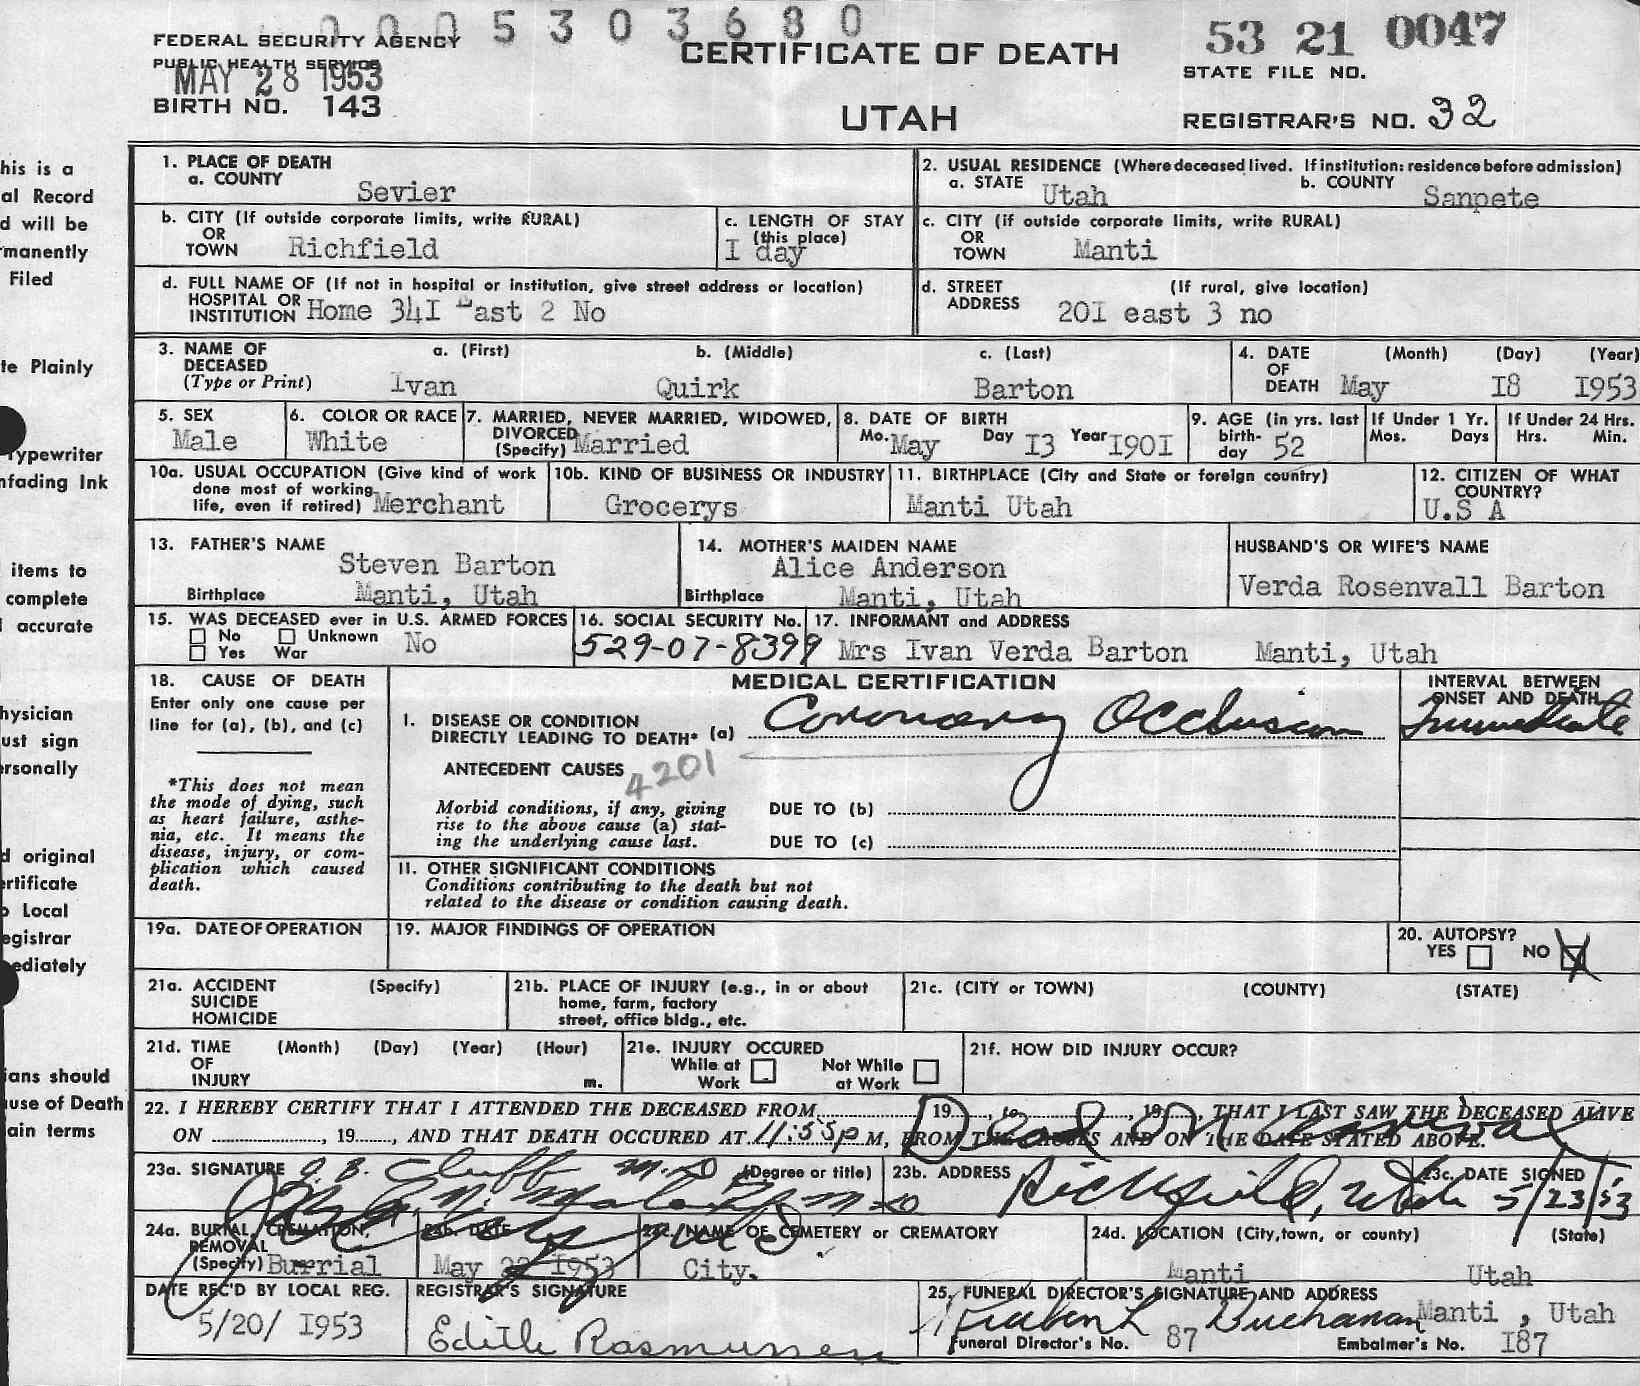 0005303680
FEDERAL SECURITY AGENCY
PUBLIC HEALTH SERVICE
MAY 28 1953
BIRTH NO. 143
CERTIFICATE OF DEATH
UTAH
53 21 0047
STATE FILE NO.
REGISTRAR'S NO. 32
his is a
al Record
d will be
rmanently
Filed
te Plainly
Typewriter
nfading Ink
items to
complete
accurate
hysician
ust sign
ersonally
d original
ertificate
o Local
egistrar
ediately
ians should
use of Death
ain terms
1. PLACE OF DEATH
a. COUNTY Sevier
2. USUAL RESIDENCE (Where deceased lived. If institution: residence before admission)
a. STATE Utah b. COUNTY Sanpete
b. CITY (If outside corporate limits, write RURAL)
OR
TOWN Richfield
c. LENGTH OF STAY
(this place)
I day
c. CITY (if outside corporate limits, write RURAL)
OR
TOWN Manti
d. FULL NAME OF (If not in hospital or institution, give street address or location)
HOSPITAL OR
INSTITUTION Home 34I East 2 No
d. STREET (If rural, give location)
ADDRESS 20I east 3 no
3. NAME OF DECEASED (Type or Print)
a. (First) b. (Middle) c. (Last)
Ivan Quirk Barton
4. DATE OF DEATH (Month) (Day) (Year)
May I8 I953
5. SEX
Male
6. COLOR OR RACE
White
7. MARRIED, NEVER MARRIED, WIDOWED,
DIVORCED
(Specify) Married
8. DATE OF BIRTH
Mo. May Day I3 Year I90I
9. AGE (in yrs. last
birth-
day 52
If Under 1 Yr.
Mos. Days
If Under 24 Hrs.
Hrs. Min.
10a. USUAL OCCUPATION (Give kind of work
done most of working
life, even if retired) Merchant
10b. KIND OF BUSINESS OR INDUSTRY
Grocerys
11. BIRTHPLACE (City and State or foreign country)
Manti Utah
12. CITIZEN OF WHAT
COUNTRY?
U.S A
13. FATHER'S NAME
Steven Barton
Birthplace Manti, Utah
14. MOTHER'S MAIDEN NAME
Alice Anderson
Birthplace Manti, Utah
HUSBAND'S OR WIFE'S NAME
Verda Rosenvall Barton
15. WAS DECEASED ever in U.S. ARMED FORCES
No Unknown No
Yes War
16. SOCIAL SECURITY No.
529-07-8399
17. INFORMANT and ADDRESS
Mrs Ivan Verda Barton Manti, Utah
18. CAUSE OF DEATH
Enter only one cause per
line for (a), (b), and (c)
*This does not mean
the mode of dying, such
as heart failure, asthe-
nia, etc. It means the
disease, injury, or com-
plication which caused
death.
MEDICAL CERTIFICATION
INTERVAL BETWEEN
ONSET AND DEATH
I. DISEASE OR CONDITION
DIRECTLY LEADING TO DEATH* (a) Coronary Occlusion Immediate
ANTECEDENT CAUSES 4201
Morbid conditions, if any, giving
rise to the above cause (a) stat-
ing the underlying cause last.
DUE TO (b)
DUE TO (c)
II. OTHER SIGNIFICANT CONDITIONS
Conditions contributing to the death but not
related to the disease or condition causing death.
19a. DATE OF OPERATION
19. MAJOR FINDINGS OF OPERATION
20. AUTOPSY?
YES NO X
21a. ACCIDENT (Specify)
SUICIDE
HOMICIDE
21b. PLACE OF INJURY (e.g., in or about
home, farm, factory
street, office bldg., etc.
21c. (CITY or TOWN) (COUNTY) (STATE)
21d. TIME (Month) (Day) (Year) (Hour)
OF
INJURY m.
21e. INJURY OCCURED
While at Work Not While at Work
21f. HOW DID INJURY OCCUR?
22. I HEREBY CERTIFY THAT I ATTENDED THE DECEASED FROM, 19, to, 19, THAT I LAST SAW THE DECEASED ALIVE
Dead On Arrival
ON, 19, AND THAT DEATH OCCURED AT 11:55p M, FROM THE CAUSES AND ON THE DATE STATED ABOVE.
23a. SIGNATURE (Degree or title)
J. B. Cluff M.D
23b. ADDRESS
Richfield, Utah
23c. DATE SIGNED
5/23/53
24a. BURIAL, CREMATION,
REMOVAL
(Specify) Burrial
24b. DATE
May 22 I953
24c. NAME OF CEMETERY or CREMATORY
City.
24d. LOCATION (City, town, or county) (State)
Manti Utah
DATE REC'D BY LOCAL REG.
5/20/ I953
REGISTRAR'S SIGNATURE
Edith Rasmussen
25. FUNERAL DIRECTOR'S SIGNATURE AND ADDRESS
Buchanan Manti, Utah
Funeral Director's No. 87 Embalmer's No. I87